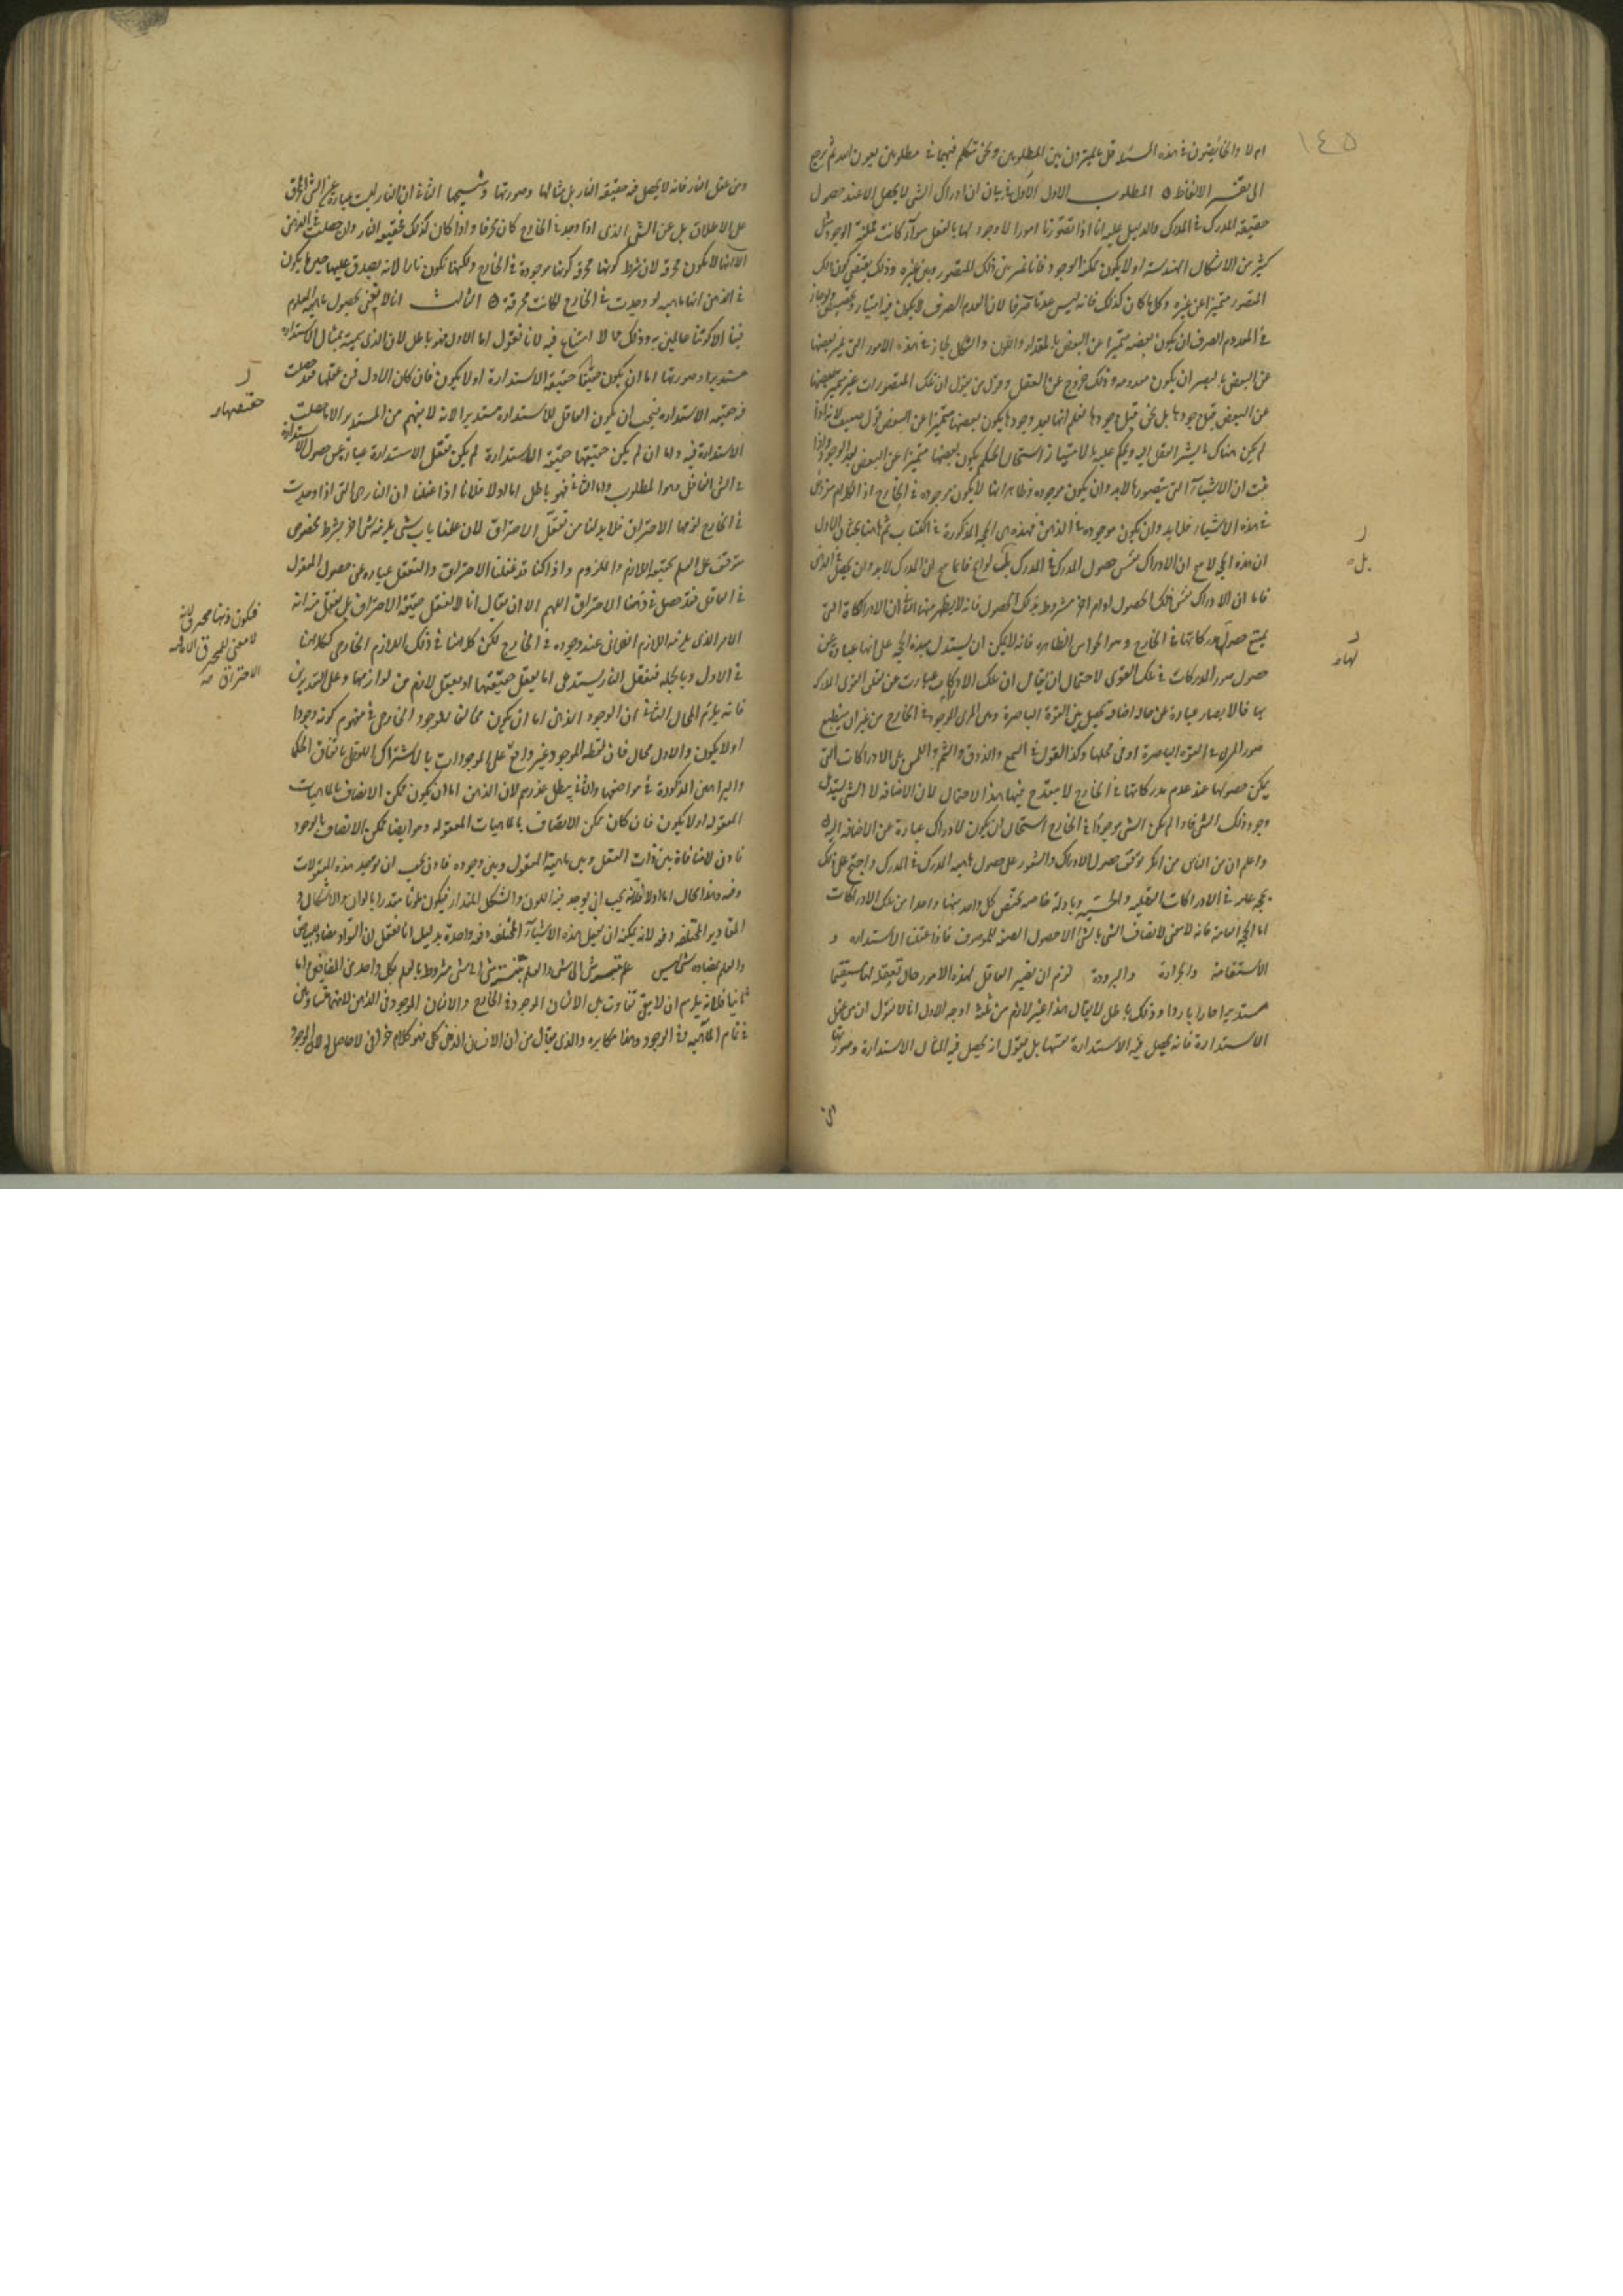 ١٤٥
ام لا والخائضون في هذه المسئلة قل ما يميزون بين المطلوبين ونحن نتكلم فيهما في مطلوبين بعون الله ثم نرجع
الى تفسير الالفاظ المطلوب الاول في بيان ان ادراك الشي لا يحصل الا عند حصول
حقيقة المدرك في المدرك والدليل عليه انا اذا تصورنا امورا لا وجود لها بالفعل سواء كانت ممكنة الوجود مثل
كثير من الاشكال الهندسية او لا يكون ممكنة الوجود فانا نميز بين ذلك المتصور وبين غيره وذلك يقتضي كون ذلك
المتصور متميزا عن غيره وكل ما كان كذلك فانه ليس عدما صرفا لان العدم الصرف لا يكون فيه امتياز وتخصيص ولو جاز
في المعدوم الصرف ان يكون بعضه متميزا عن البعض بالمقدار واللون والشكل لجاز في هذه الامور التي نميز بعضها
عن البعض بالبصر ان يكون معدومة وذلك خروج عن العقل وقول من يقول ان تلك المتصورات غير متميز بعضها
عن البعض قبل وجودها بل نحن قبل وجودها نعلم انها بعد وجودها يكون بعضها متميزا عن البعض قول ضعيف لانه اذا
لم يكن هناك ما يشير العقل اليه ويحكم عليه بالامتياز استحال الحكم بكون بعضها متميزا عن البعض بعد الوجود واذا
ثبت ان الاشياء التي نتصورها لابد وان يكون موجودة وظاهر انها لا يكون موجودة في الخارج اذ الكلام مفروض
في هذه الاشياء فلابد وان يكون موجودة في الذهن فهذه هي الحجة المذكورة في الكتاب ثم هاهنا بحثان الاول
ان هذه الحجة لا
فاما ان الادراك نفس ذلك الحصول او امر اخر مشروط بذلك الحصول فانه لا يظهر منها الثاني ان الادراكات التي
يمتنع حصول مدركاتها في الخارج وهو الحواس الظاهرة فانه لا يمكن ان يستدل بهذه الحجة على انها عبارة عن
حصول صور المدركات في تلك القوى لاحتمال ان يقال ان تلك الادراكات عبارت عن
بها فالابصار عبارة عن حالة اضافية تحصل بين القوة الباصرة وبين المرئ الموجود في الخارج من غير ان ينطبع
صور المرئ في القوة الباصرة او في محلها وكذا القول في السمع والذوق والشم واللمس بل الادراكات التي
يمكن حصولها عند عدم مدركاتها في الخارج لا يقدح فيها هذا الاحتمال لان الاضافة لا الشي يستدل
وجود ذلك الشي فاذا لم يكن الشي موجودا في الخارج استحال ان يكون الادراك عبارة عن الاضافة اليه
واعلم ان من الناس من انكر توقف حصول الادراك والشعور على حصول ماهية المدرك في المدرك واحتج على ذلك
بحجة عامة في الادراكات العقلية والحسية وبادلة خاصة تختص كل واحد منها واحدا من تلك الادراكات
اما الحجة العامة فانه لا معنى لاتصاف الشي بالشي الا حصول الصفة للموصوف فاذا عقلنا الاستدارة و
الاستقامة والحرارة والبرودة لزم ان يصير العاقل لهذه الامور حال تعقله لها مستقيما
مستديرا حارا باردا وذلك باطل لا يقال هذا غير لازم من ثلثة اوجه الاول انا لا نقول ان من عقل
الاستدارة فانه يحصل فيه الاستدارة نفسها بل نقول انه يحصل فيه المثال الاستدارة وصورتها
بل
لها
ومن عقل النار فانه لا يحصل فيه حقيقة النار بل مثالها وصورتها وشبحها الثاني ان النار ليست عبارة عن الشي المحرق
على الاطلاق بل عن الشي الذي اذا وجد في الخارج كان محرقا واذا كان كذلك فحقيقة النار وان حصلت في الذهن
الا انها لا يكون محرقة لان شرط كونها محرقة كونها موجودة في الخارج ولكنها تكون نارا لانه يصدق عليها حين ما يكون
في الذهن انها ماهية لو وجدت في الخارج لكانت محرقة الثالث انا لا نعني بحصول ماهية المعلوم
فينا الا كوننا عالمين به وذلك مما لا امتناع فيه لانا نقول اما الاول فهو باطل لان الذي سميته بمثال الاستدارة
مستديرا وصورتها اما ان يكون حقيقتها حقيقة الاستدارة او لا يكون فان كان الاول فمن عقلها فقد حصلت
فيه حقيقة الاستدارة فيجب ان يكون العاقل للاستدارة مستديرا لانه لا يفهم من المستدير الا ما حصلت
الاستدارة فيه واما ان لم يكن حقيقتها حقيقة الاستدارة لم يكن تعقل الاستدارة عبارة عن حصول الاستدارة
في الشي العاقل وهو المطلوب واما الثاني فهو باطل اما اولا فلانا اذا عقلنا ان النار هي التي اذا وجدت
في الخارج لزمها الاحتراق فلابد لنا من تعقل الاحتراق لان علمنا بان شي يلزمه شي اخر بشرط مخصوص
متوقف على العلم بحقيقة اللازم والملزوم واذا كنا قد عقلنا الاحتراق والتعقل عبارة عن حصول المعقول
في العاقل فقد حصل في ذهننا الاحتراق اللهم الا ان يقال انا لا نعقل حقيقة الاحتراق بل نعقل منه انه
الامر الذي يلزمه اللازم الفلاني عند وجوده في الخارج لكن كلامنا في ذلك اللازم الخارجي ككلامنا
في الاول وبالجملة فتعقل النار يستدعي اما تعقل حقيقتها او تعقل لازم من لوازمها وعلى التقديرين
فانه يلزم المحال الثاني ان الوجود الذهني اما ان يكون مخالفا للوجود الخارجي في مفهوم كونه وجودا
او لا يكون والاول محال فان لفظة الموجود غير واقع على الموجودات بالاشتراك اللفظي باتفاق الحكما
والبراهين المذكورة في مواضعها والثاني يبطل عذرهم لان الذهن اما ان يكون ممكن الاتصاف بالماهيات
المعقولة او لا يكون فان كان ممكن الاتصاف بالماهيات المعقولة وهو ايضا ممكن الاتصاف بالوجود
فاذن لا منافاة بين ذات العقل وبين ماهية المعقول وبين وجوده فاذن يجب ان يوجد هذه المعقولات
فيه وهذا محال اما اولا فلانه يجب ان يوجد فيه اللون والشكل والمقدار فيكون ملونا مقدرا بالوان والاشكال و
المقادير المختلفة دفعة لانه يمكنه ان تعقل هذه الاشياء المختلفة دفعة واحدة بدليل انا نعقل ان السواد مضاد للبياض
والعلم بمضادة شيئين علم بنسبة شي الى شي والعلم بنسبة شي الى شي مشروط بالعلم بكل واحد من المضافين واما
ثانيا فلانه يلزم ان لا يبقى تفاوت بين الانسان الموجود في الخارج والانسان الموجود في الذهن لانهما متساويان
في تمام الماهية وفي الوجود وهذا مكابرة والذي يقال من ان الانسان الذهني كلي فهو كلام خرافي لا حاصل له لان الموجود
حقيقتها
فتكون ذهننا محترق لانه
لا معنى للمحترق الا ما فيه
الاحتراق